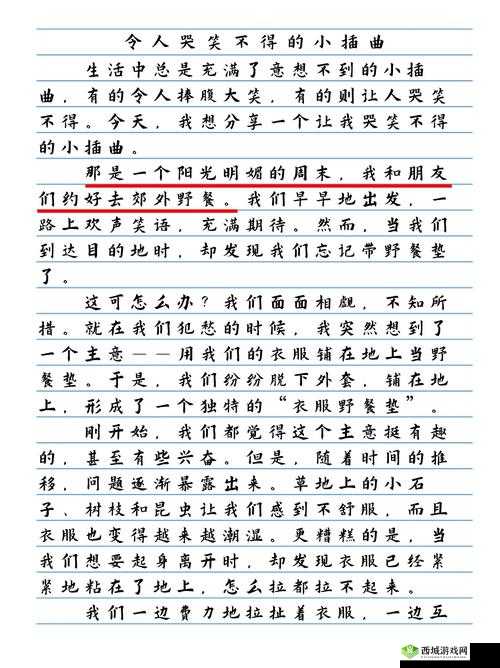 令人哭笑不得的小插曲
生活中总是充满了意想不到的小插
曲，有的令人捧腹大笑，有的则让人哭笑
不得。今天，我想分享一个让我哭笑不得
的小插曲。
那是一个阳光明媚的周末，我和朋友
们约好去郊外野餐。我们早早地出发，一
路上欢声笑语，充满期待。然而，当我们
到达目的地时，却发现我们忘记带野餐垫
了。
这可怎么办？我们面面相觑，不知所
措。就在我们犯愁的时候，我突然想到了
一个主意——用我们的衣服铺在地上当野
餐垫。于是，我们纷纷脱下外套，铺在地
上，形成了一个独特的“衣服野餐垫”。
刚开始，我们都觉得这个主意挺有趣
的，甚至有些兴奋。但是，随着时间的推
移，问题逐渐暴露出来。草地上的小石
子、树枝和昆虫让我们感到不舒服，而且
衣服也变得越来越潮湿。更糟糕的是，当
我们想要起身离开时，却发现衣服已经紧
紧地粘在了地上，怎么拉都拉不起来。
我们一边费力地拉扯着衣服，一边互
西城游戏网